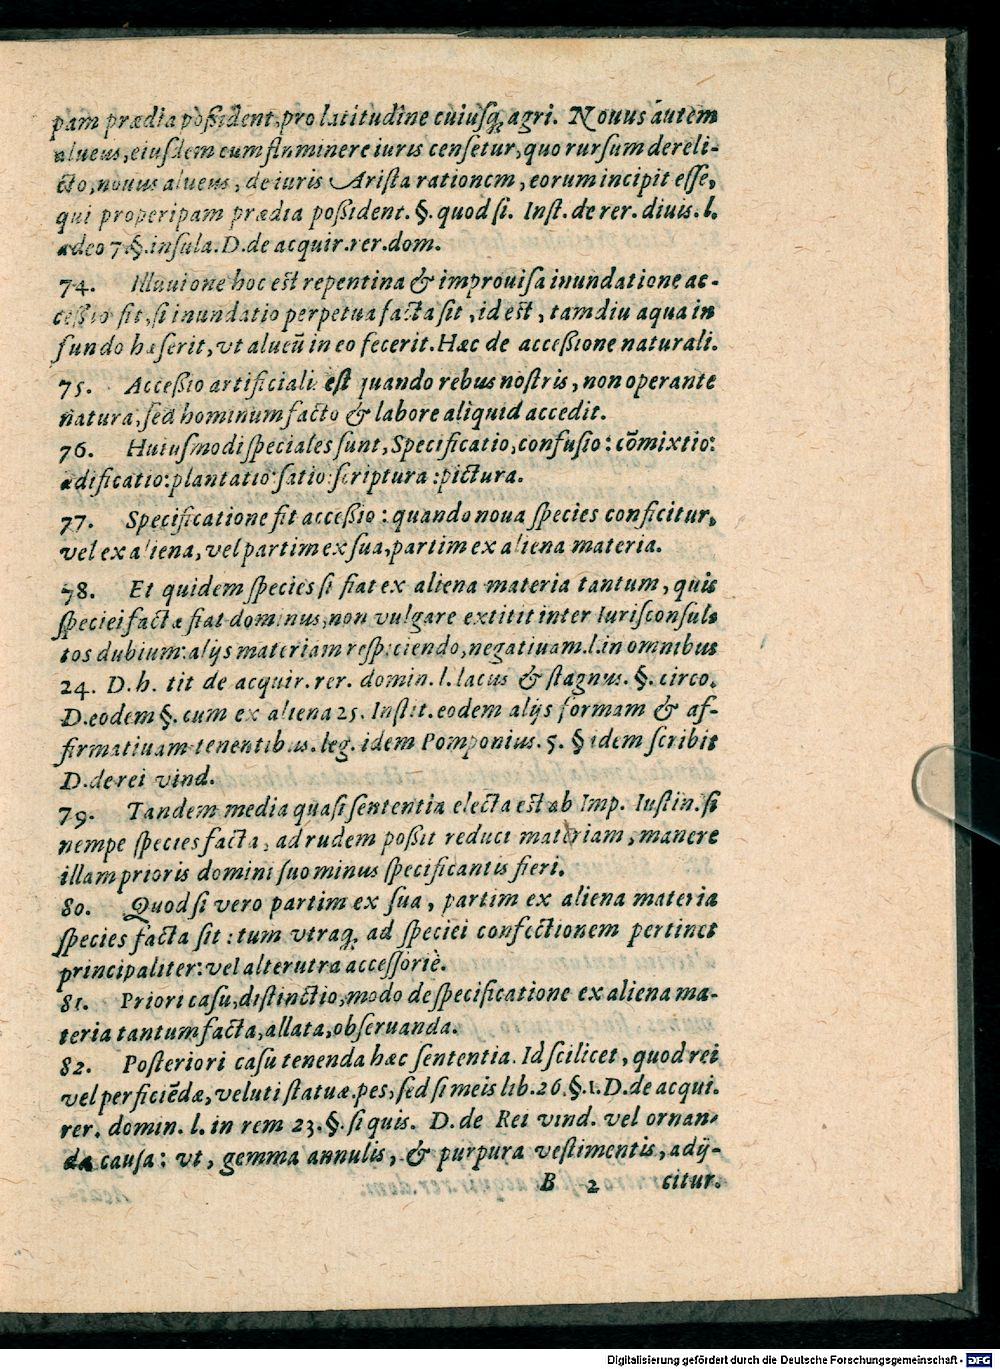 pam prædia poßident, pro latitudine cuiusq́; agri. Nouus autem
alueus, eiusdem cum fluminere iuris censetur, quo rursum dereli-
cto, nouus alueus, de iuris Arista rationem, eorum incipit esse,
qui prope ripam prædia poßident. §. quod si. Inst. de rer. diuis. l.
adeo 7. §. insula. D. de acquir. rer. dom.
74. Illuuione hoc est repentina & improuisa inundatione ac-
ceßio fit, si inundatio perpetua facta sit, id est, tamdiu aqua in
fundo hæserit, vt alueũ in eo fecerit. Hæc de acceßione naturali.
75. Acceßio artificialis est quando rebus nostris, non operante
natura, sed hominum facto & labore aliquid accedit.
76. Huiusmodi speciales sunt, Specificatio, confusio: cõmixtio:
ædificatio: plantatio: satio: scriptura: pictura.
77. Specificatione fit acceßio: quando noua species conficitur,
vel ex aliena, vel partim ex sua, partim ex aliena materia.
78. Et quidem species si fiat ex aliena materia tantum, quis
speciei factæ fiat dominus, non vulgare extitit inter Iurisconsul-
tos dubium: alijs materiam respiciendo, negatiuam. l. in omnibus
24. D. h. tit de acquir. rer. domin. l. lacus & stagnus. §. circo.
D. eodem §. cum ex aliena 25. Instit. eodem alijs formam & af-
firmatiuam tenentibus. leg. idem Pomponius. 5. § idem scribit
D. de rei vind.
79. Tandem media quasi sententia electa est ab Imp. Iustin. si
nempe species facta, ad rudem poßit reduci materiam, manere
illam prioris domini suo minus specificantis fieri.
80. Quod si vero partim ex sua, partim ex aliena materia
species facta sit: tum vtraq́; ad speciei confectionem pertinet
principaliter: vel alterutra accessoriè.
81. Priori casu, distinctio, modo de specificatione ex aliena ma-
teria tantum facta, allata, obseruanda.
82. Posteriori casu tenenda hæc sententia. Id scilicet, quod rei
vel perficiẽdæ, veluti statuæ. pes, sed si meis lib. 26. §. 1. D. de acqui.
rer. domin. l. in rem 23. §. si quis. D. de Rei vind. vel ornan-
da causa: vt, gemma annulis, & purpura vestimentis, adij-
B 2 citur.
Digitalisierung gefördert durch die Deutsche Forschungsgemeinschaft - DFG